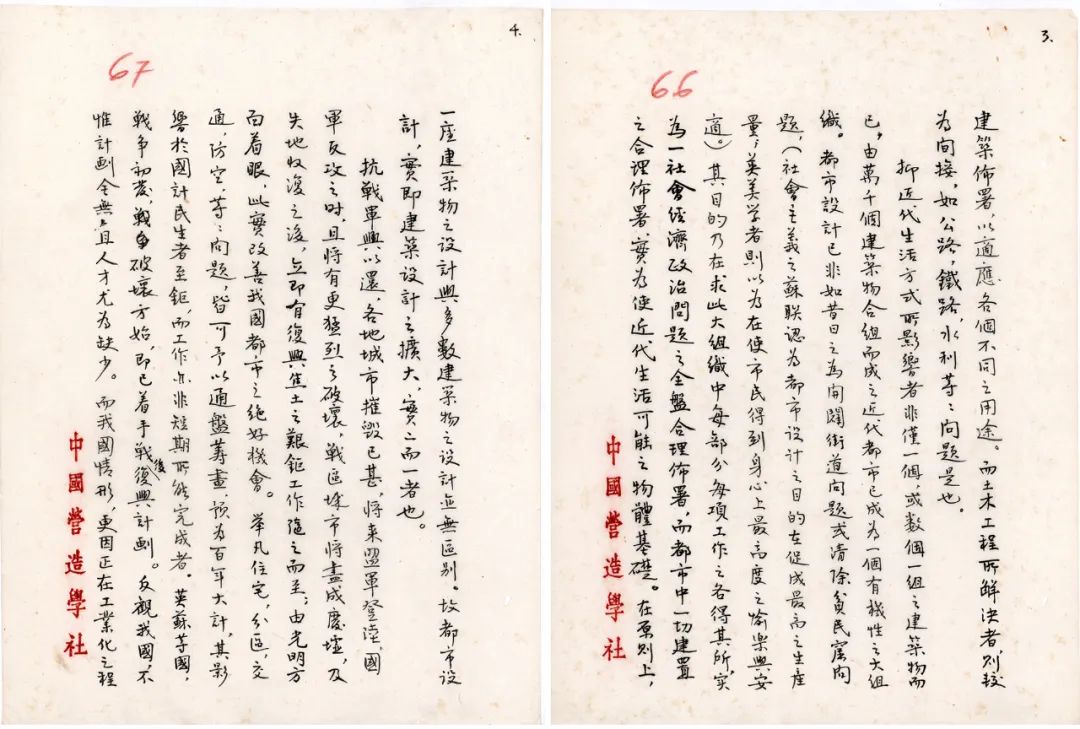 3.
66
建築佈署，以適應各個不同之用途。而土木工程所解決者，則較
為间接，如公路，鐵路，水利等：问題是也。
抑近代生活方式所影響者非僅一個，或数個一組之建築物而
已，由萬千個建築物合組而成之近代都市已成為一個有機性之大組
織。都市設計已非如昔日之為開闢街道问題或清除貧民窟问
題，（社會主義之蘇联認為都市設計之目的在促成最高之生產
量；英美学者則以為在使市民得到身心上最高度之愉樂與安
適）。其目的乃在求此大組織中每部分每項工作之各得其所，实
為一社會経濟政治问題之全盤合理佈署，而都市中一切建置
之合理佈署，實為使近代生活可能之物體基礎。在原則上，
中國營造學社
4.
67
一座建築物之設計與多數建築物之設計並無區别。故都市設
計，實即建築設計之擴大，實二而一者也。
抗戰軍興以還，各地城市摧毁已甚，将来盟軍登陸，國
軍反攻之时，且将有更猛烈之破壞，戰區城市将盡成廢墟，及
失地收復之後，立即有復興焦土之艱鉅工作隨之而至；由光明方
面着眼，此實改善我國都市之絶好機會。舉凡住宅，分區，交
通，防空，等：问題，皆可予以通盤籌畫，预为百年大計，其影
響於國計民生者至鉅，而工作亦非短期所能完成者。英蘇等國，
戰争初發，戰争破壞方始，即已着手戰後復興計劃。反觀我國，不
惟計劃全無，且人才尤為缺少。而我國情形，更因正在工業化之程
中國營造學社